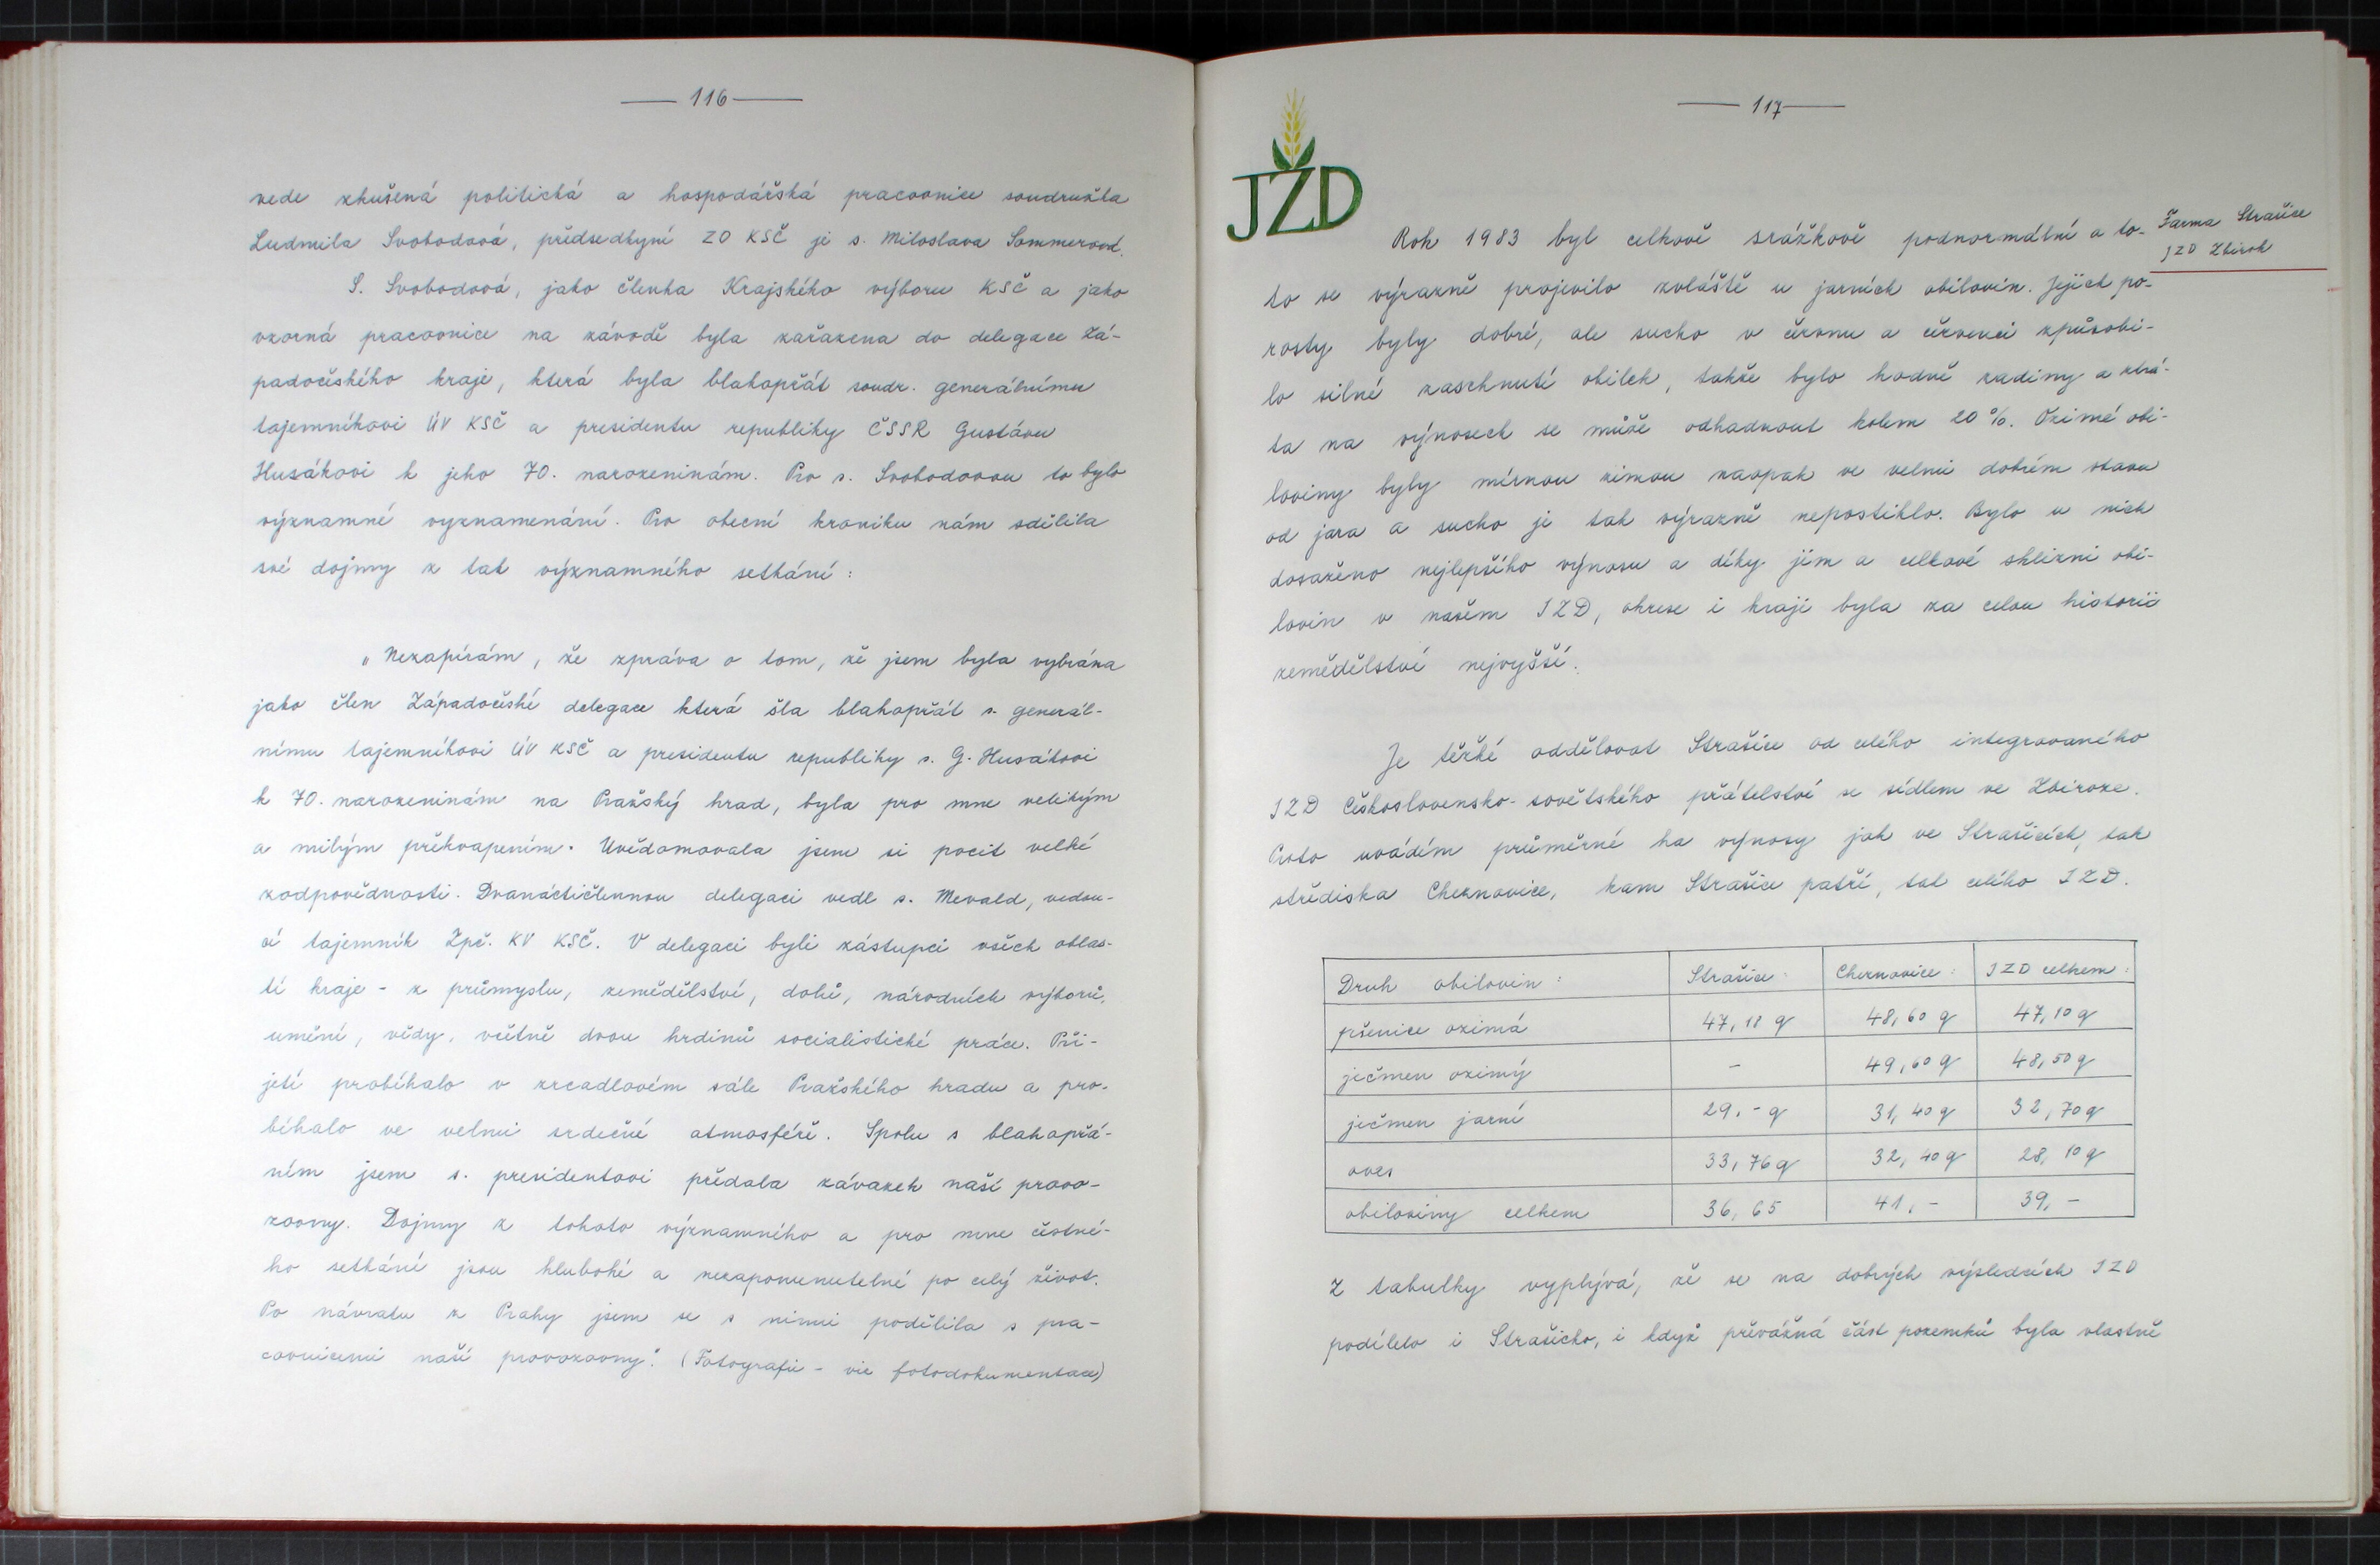 — 116 —
vede zkušená politická a hospodářská pracovnice soudružka
Ludmila Svobodová, předsedkyní ZO KSČ je s. Miloslava Sommerová.
S. Svobodová, jako členka Krajského výboru KSČ a jako
vzorná pracovnice na závodě byla zařazena do delegace Zá-
padočeského kraje, která byla blahopřát soudr. generálnímu
tajemníkovi ÚV KSČ a presidentu republiky ČSSR Gustávu
Husákovi k jeho 70. narozeninám. Pro s. Svobodovou to bylo
významné vyznamenání. Pro obecní kroniku nám sdělila
své dojmy z tak významného setkání:
„Nezapírám, že zpráva o tom, že jsem byla vybrána
jako člen Západočeské delegace která šla blahopřát s. generál-
nímu tajemníkovi ÚV KSČ a presidentu republiky s. G. Husákovi
k 70. narozeninám na Pražský hrad, byla pro mne velikým
a milým překvapením. Uvědomovala jsem si pocit velké
zodpovědnosti. Dvanáctičlennou delegaci vedl s. Mevald, vedou-
cí tajemník Zpč. KV KSČ. V delegaci byli zástupci všech oblas-
tí kraje - z průmyslu, zemědělství, dolů, národních výborů,
umění, vědy, včetně dvou hrdinů socialistické práce. Při-
jetí probíhalo v zrcadlovém sále Pražského hradu a pro-
bíhalo ve velmi srdečné atmosféře. Spolu s blahopřá-
ním jsem s. presidentovi předala závazek naší provo-
zovny. Dojmy z tohoto významného a pro mne čestné-
ho setkání jsou hluboké a nezapomenutelné po celý život.
Po návratu z Prahy jsem se s nimi podělila s pra-
covnicemi naší provozovny." (Fotografie - viz fotodokumentace)
— 117 —
JZD
Farma Strašice
JZD Zbiroh
Rok 1983 byl celkově srážkově podnormální a to-
to se výrazně projevilo zvláště u jarních obilovin. Jejich po-
rosty byly dobré, ale sucho v červnu a červenci způsobi-
lo silné zaschnutí obilek, takže bylo hodně zadiny a ztrá-
ta na výnosech se může odhadnout kolem 20 %. Ozimé obi-
loviny byly mírnou zimou naopak ve velmi dobrém stavu
od jara a sucho je tak výrazně nepostihlo. Bylo u nich
dosaženo nejlepšího výnosu a díky jim a celkové sklizni obi-
lovin v našem JZD, okrese i kraji byla za celou historii
zemědělství nejvyšší.
Je těžké oddělovat Strašice od celého integrovaného
JZD Československo-sovětského přátelství se sídlem ve Zbiroze.
Proto uvádím průměrné ha výnosy jak ve Strašicích, tak
střediska Cheznovice, kam Strašice patří, tak celého JZD.
Druh obilovin: Strašice: Cheznovice: JZD celkem:
pšenice ozimá 47,18 q 48,60 q 47,10 q
ječmen ozimý - 49,60 q 48,50 q
ječmen jarní 29,- q 31,40 q 32,70 q
oves 33,76 q 32,40 q 28,10 q
obiloviny celkem 36,65 41,- 39,-
Z tabulky vyplývá, že se na dobrých výsledcích JZD
podílelo i Strašicko, i když převážná část pozemků byla vlastně